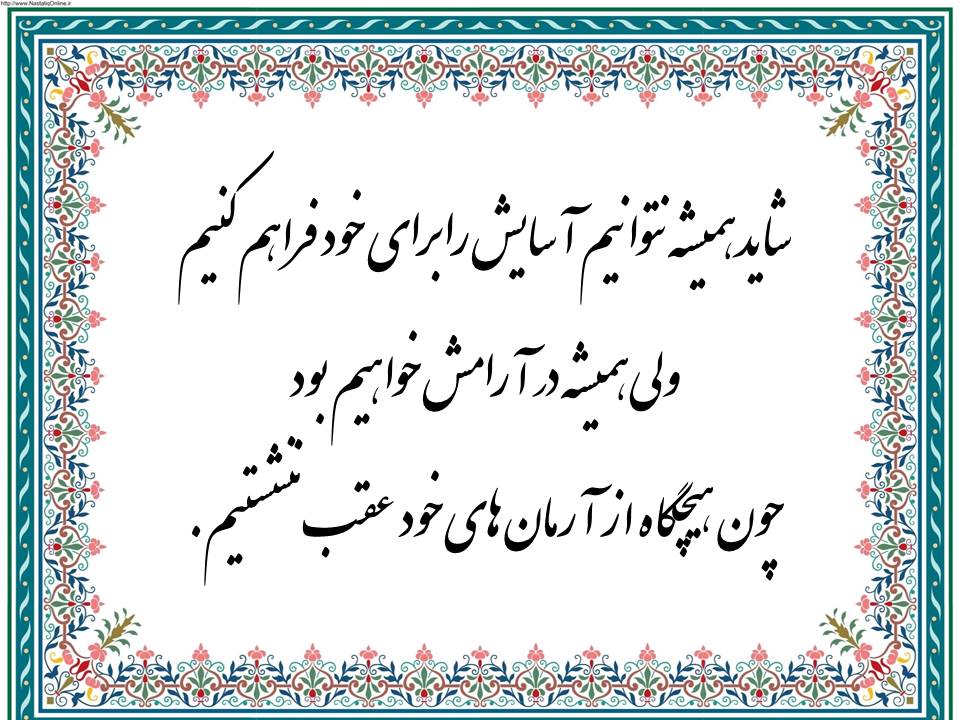 http://www.NastaliqOnline.ir
شاید همیشه نتوانیم آسایش را برای خود فراهم کنیم
ولی همیشه در آرامش خواهیم بود
چون هیچگاه از آرمان های خود عقب ننشستیم .